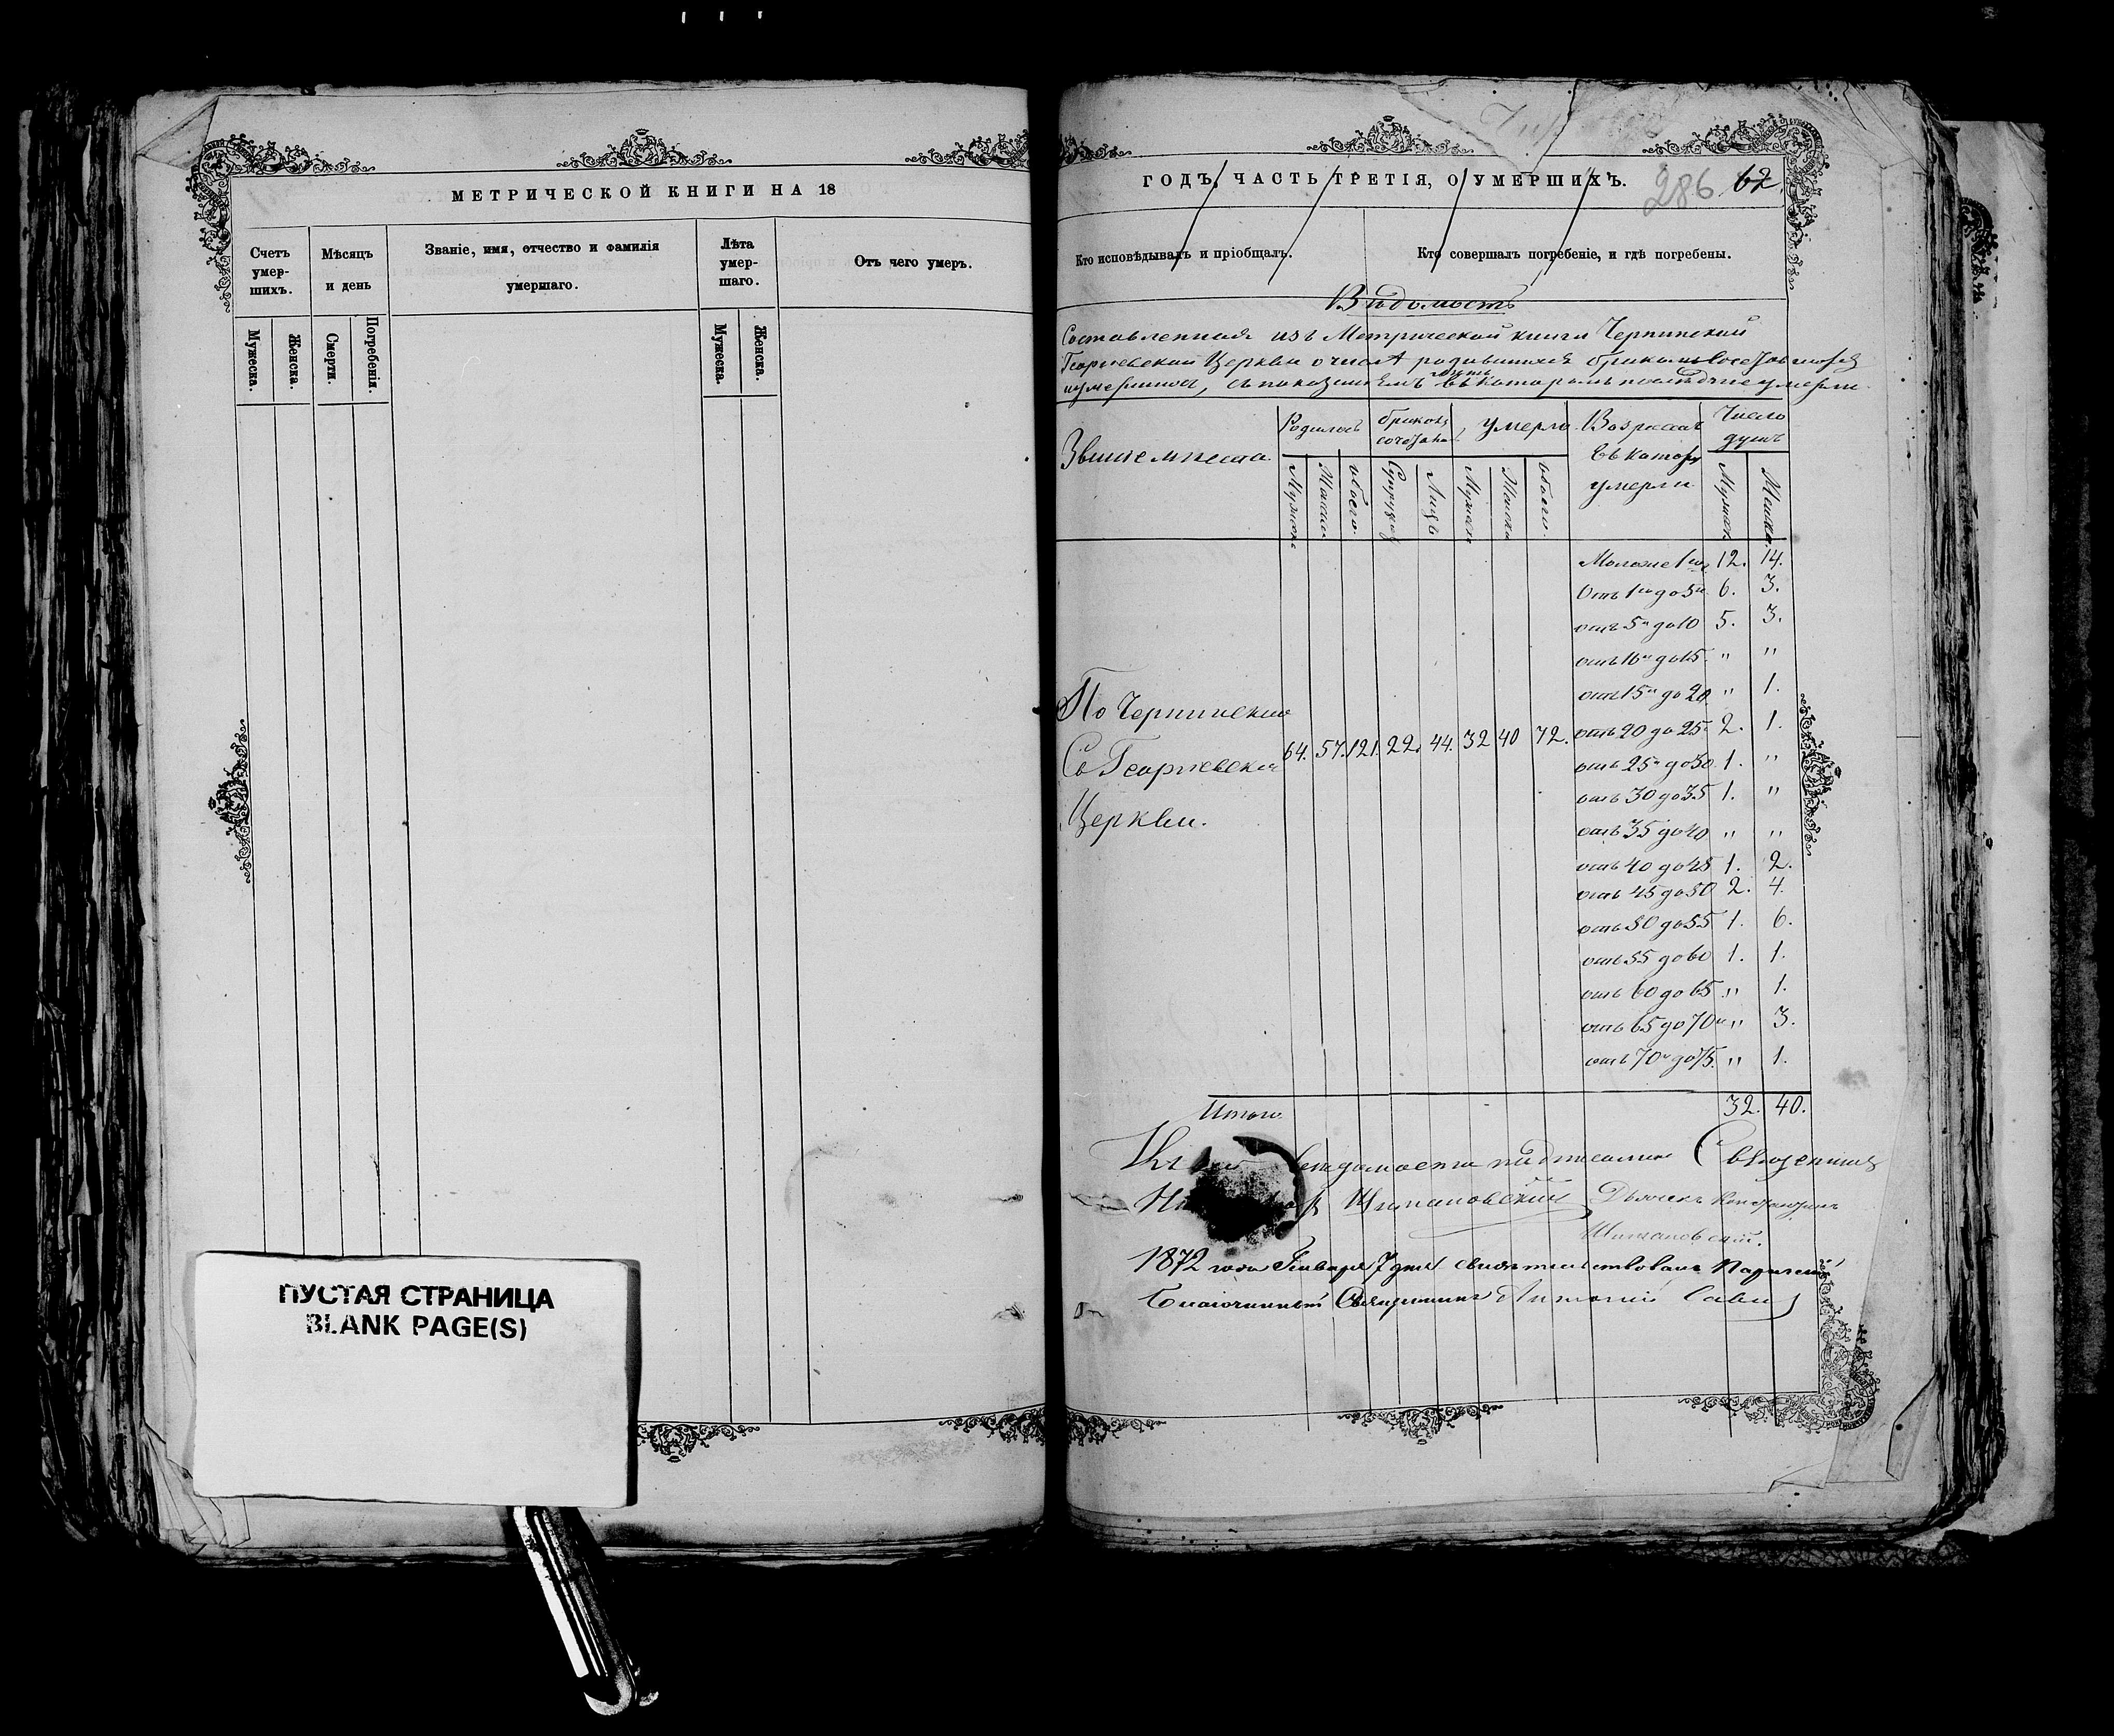 МЕТРИЧЕСКОЙ КНИГИ НА 18
Счетъ умер-шихъ.
Мѣсяцъ и день
Званіе, имя, отчество и фамилія умершаго.
Лѣта умер-шаго.
Отъ чего умеръ.
Мужеска.
Женска.
Смерти.
Погребенія.
Мужеска.
Женска.
ПУСТАЯ СТРАНИЦА
BLANK PAGE(S)
ГОДЪ, ЧАСТЬ ТРЕТІЯ, О УМЕРШИХЪ.
286 62.
Кто исповѣдывалъ и пріобщалъ.
Кто совершалъ погребеніе, и гдѣ погребены.
Вѣдомость
Составленная изъ Метрической книги
Георгіевской Церкви о числѣ родившихся
умершихъ, съ показаніемъ въ которомъ послѣдніе умерли.
Званіе мѣста.
Родилось
умерло
Возрастъ въ котор умерли
Число душъ
обоего
Лицъ
обоего.
Моложе 1го 12. 14.
Отъ 1го до 5и 6. 3.
отъ 5и до 10 5. 3.
отъ 10и до 15. " "
отъ 15и до 20. " 1.
отъ 20 до 25 2. 1.
отъ 25и до 30. 1. "
отъ 30 до 35 1. "
отъ 35 до 40 " "
отъ 40 до 45 1. 2.
отъ 45 до 50 2. 4.
отъ 50 до 55 1. 6.
отъ 55 до 60 1. 1.
отъ 60 до 65 " 1.
отъ 65 до 70и " 3.
отъ 70и до 75. " 1.
По
Св Георгіевской
Церкви.
64. 57. 121. 22. 44. 32 40 72.
Итого 32. 40.
вѣдомости подписали Священникъ
Шимановскій Дьячекъ
Шимановскій.
1872 года Января 7 дня свидѣтельствовалъ
Благочинный Священникъ Антоній